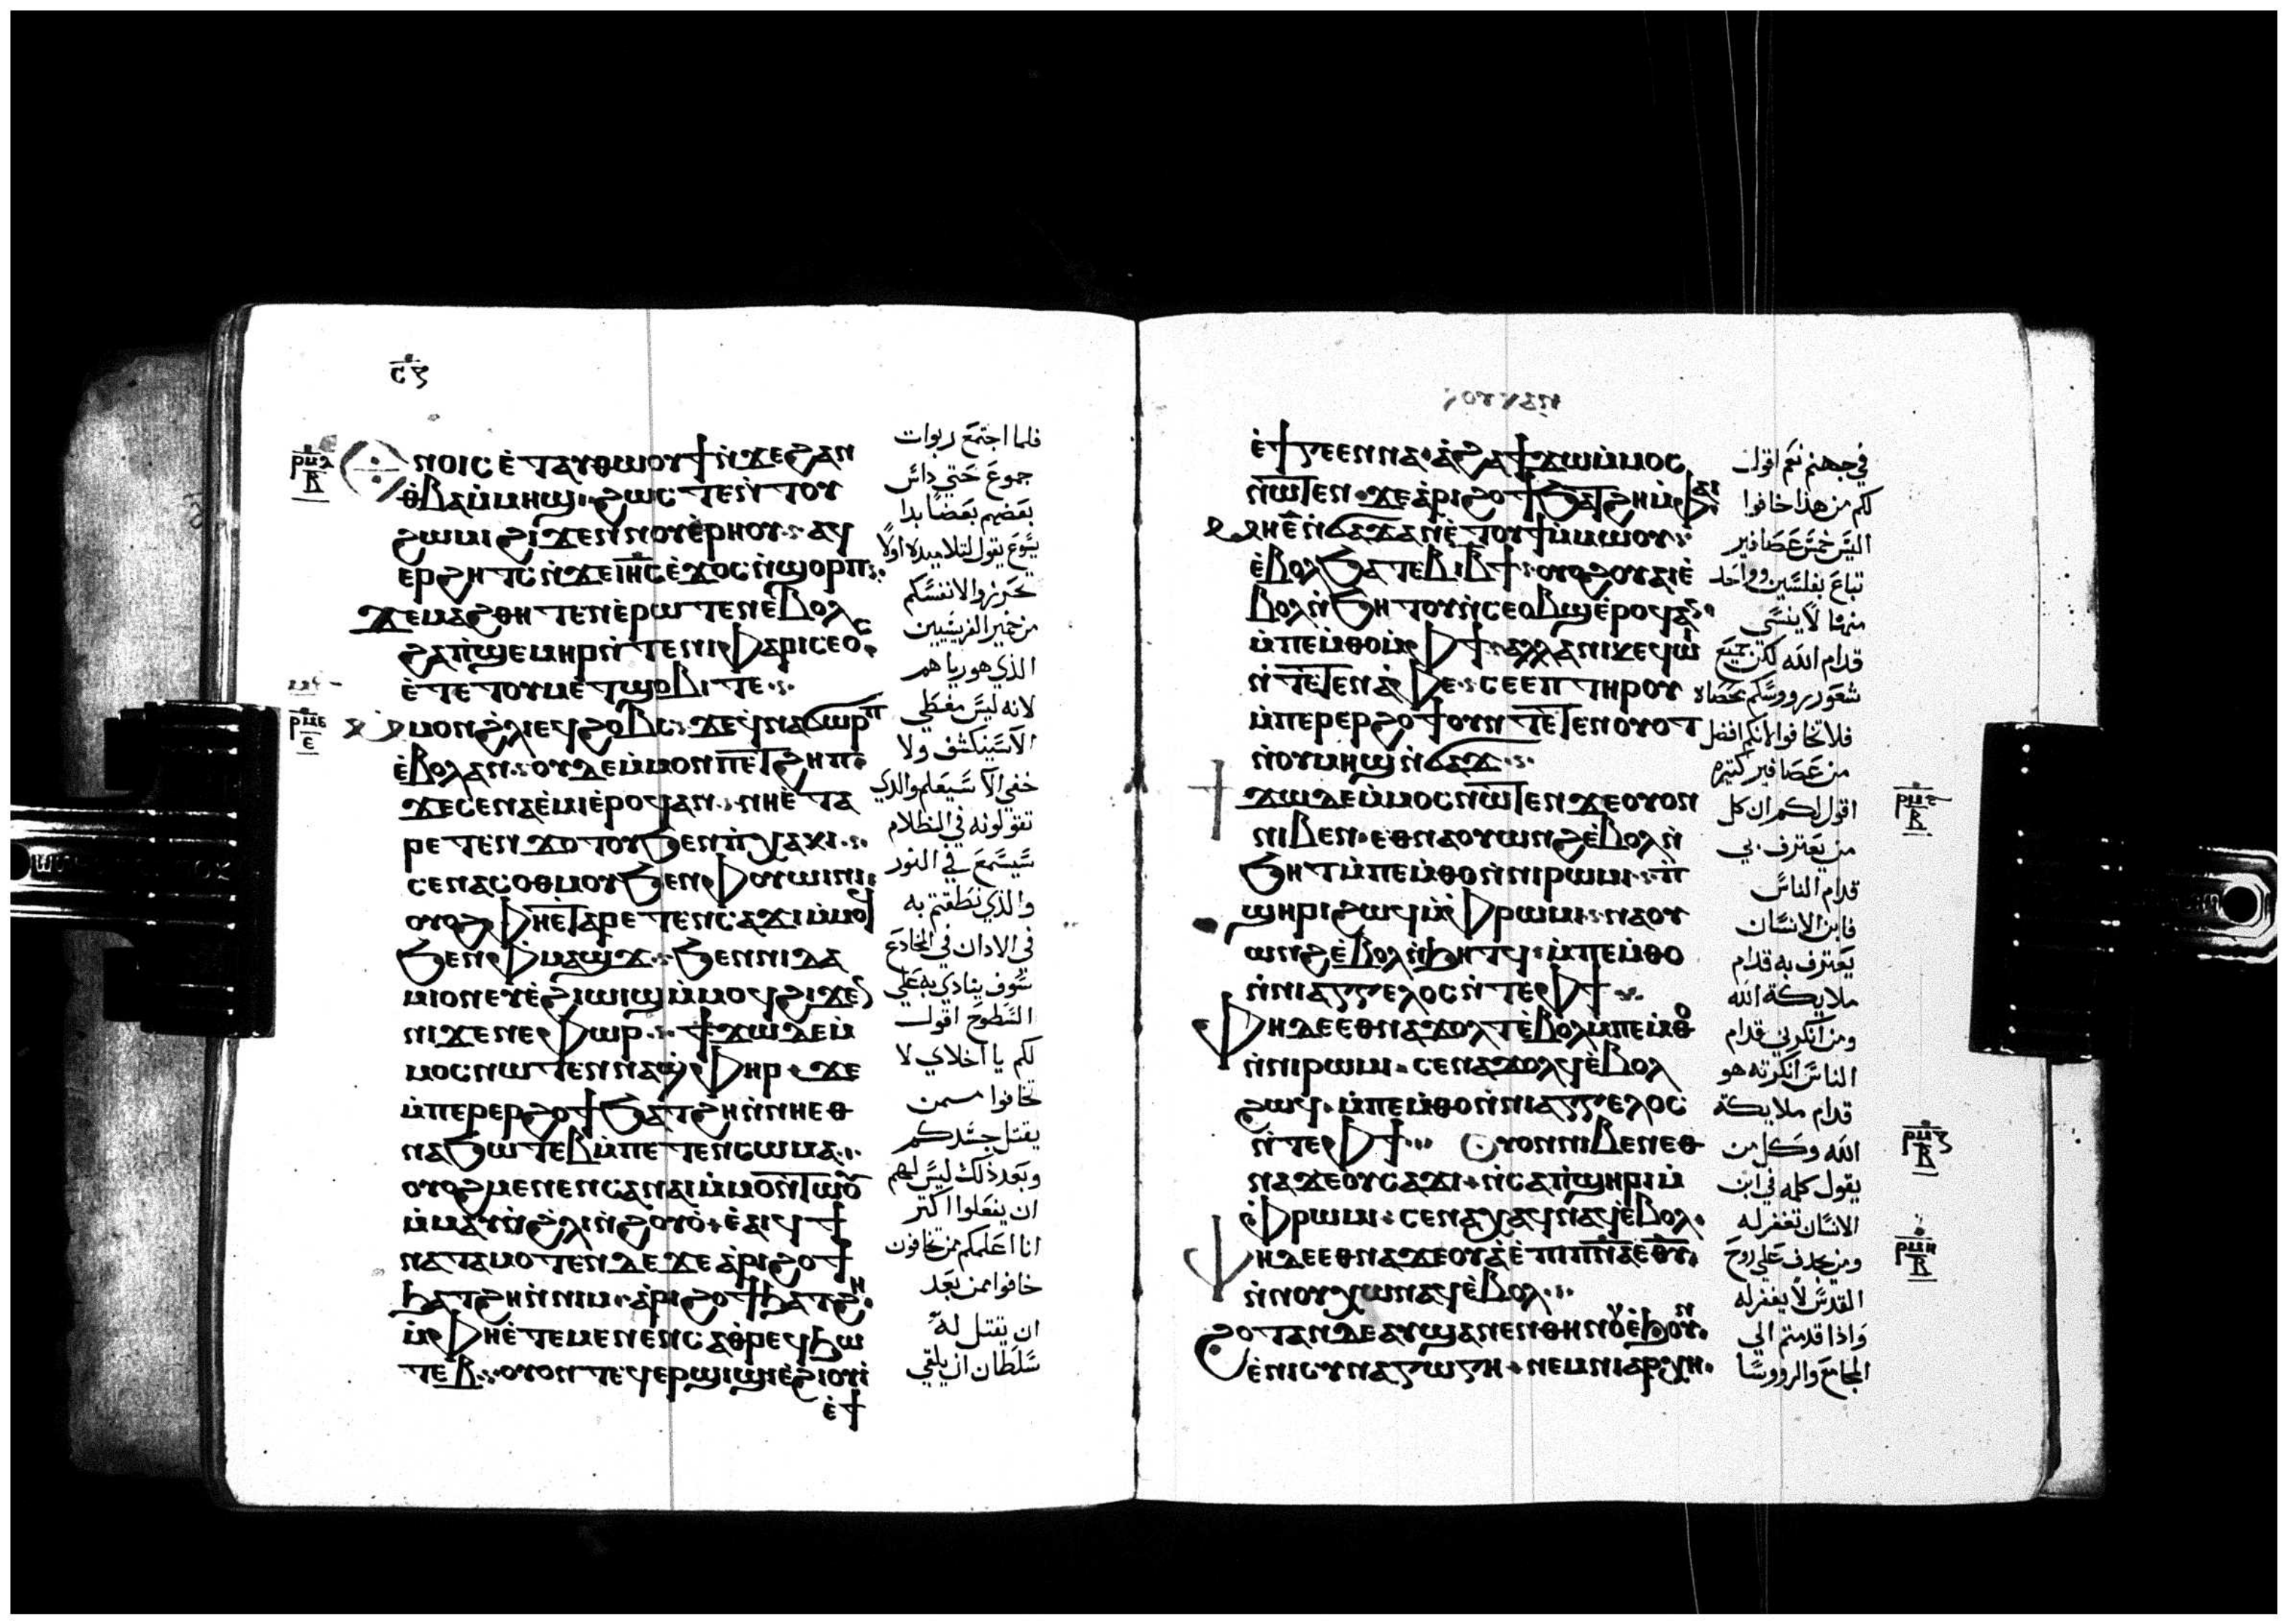 ⲥ̅ⲍ̅
ⲛⲟⲓⲥ ⲉ̀ⲧⲁⲩⲑⲱⲟⲩϯ ⲛ̀ϫⲉϩⲁⲛ
ⲑⲃⲁ ⲙ̀ⲙⲏϣ ϩⲱⲥⲧⲉ ⲛ̀ⲧⲟⲩ
ϩⲱⲙⲓ ϩⲓϫⲉⲛ ⲛⲟⲩⲉ̀ⲣⲏⲟⲩ ⲁϥ
ⲉⲣϩⲏⲧⲥ ⲛ̀ϫⲉ ⲓⲏ̅ⲥ̅ ⲉ̀ϫⲟⲥ ⲛ̀ϣⲟⲣⲡ
ϫⲉ ⲙⲁϩⲑⲏⲧⲉⲛ ⲉ̀ⲣⲱⲧⲉⲛ ⲉ̀ⲃⲟⲗ
ϩⲁ ⲡ̀ϣⲉⲙⲏⲣ ⲛ̀ⲧⲉ ⲛⲓⲫⲁⲣⲓⲥⲉⲟⲥ
ⲉ̀ⲧⲉ ⲧⲟⲩⲙⲉⲧϣⲟⲃⲓ ⲧⲉ
ⲙ̀ⲙⲟⲛ ϩ̀ⲗⲓ ⲉϥϩⲟⲃⲥ ϫⲉ ϥ̀ⲛⲁϭⲱⲣⲡ
ⲉ̀ⲃⲟⲗ ⲁⲛ ⲟⲩⲇⲉ ⲙ̀ⲙⲟⲛ ⲡⲉⲧϩⲏⲡ
ϫⲉ ⲥⲉⲛⲁⲉ̀ⲙⲓ ⲉ̀ⲣⲟϥ ⲁⲛ ⲛⲏ ⲉ̀ⲧⲁ
ⲣⲉⲧⲉⲛϫⲟⲧⲟⲩ ϧⲉⲛ ⲡ̀ⲭⲁⲕⲓ
ⲥⲉⲛⲁⲥⲟⲑⲙⲟⲩ ϧⲉⲛ ⲫⲟⲩⲱⲓⲛⲓ
ⲟⲩⲟϩ ⲫⲏ ⲉ̀ⲧⲁⲣⲉⲧⲉⲛⲥⲁϫⲓ ⲙ̀ⲙⲟϥ
ϧⲉⲛ ⲫ̀ⲙⲁϣϫ ϧⲉⲛ ⲛⲓⲧⲁ
ⲙⲓⲟⲛ ⲉⲩⲉ̀ϩⲓⲱⲓϣ ⲙ̀ⲙⲟϥ ϩⲓϫⲉⲛ
ⲛⲓϫⲉⲛⲉⲫⲱⲣ ϯϫⲱ ⲇⲉ ⲙ̀
ⲙⲟⲥ ⲛⲱⲧⲉⲛ ⲛⲁϣ̀ⲫⲏⲣ ϫⲉ
ⲙ̀ⲡⲉⲣⲉⲣϩⲟϯ ϧⲁⲧϩⲏ ⲛ̀ⲛⲏ ⲉⲑ
ⲛⲁϧⲱⲧⲉⲃ ⲙ̀ⲡⲉⲧⲉⲛⲥⲱⲙⲁ
ⲟⲩⲟϩ ⲙⲉⲛⲉⲛⲥⲁ ⲛⲁⲓ ⲙ̀ⲙⲟⲛⲧⲱⲟⲩ
ⲙ̀ⲙⲁⲩ ⲛ̀ϩ̀ⲗⲓ ⲛ̀ϩⲟⲩⲟ̀ ⲉ̀ⲁⲓϥ ϯ
ⲛⲁⲧⲁⲙⲟⲧⲉⲛ ⲇⲉ ϫⲉ ⲁ̀ⲣⲓϩⲟϯ
ϧⲁⲧϩⲏ ⲛ̀ⲛⲓⲙ ⲁ̀ⲣⲓϩⲟϯ ϧⲁⲧϩⲏ
ⲙ̀ⲫⲏ ⲉ̀ⲧⲉ ⲙⲉⲛⲉⲛⲥⲁ ⲑ̀ⲣⲉϥϧⲱ
ⲧⲉⲃ ⲟⲩⲟⲛⲧⲉϥ ⲉⲣϣⲓϣⲓ ⲉ̀ϩⲓⲟⲩⲓ
ⲉ̀ϯ
فلما اجتمع ربوات
جموع حتي دائس
بعضهم بعضا بدا
يسوع يقول لتلاميذه اولا
تحرزوا لانفسكم
من خمير الفريسيين
الذي هو رياهم
لانه ليس مغطي
الا سينكشف ولا
خفي الا سيعلم والذي
تقولونه في الظلام
سيسمع في النور
والذي نطقتم به
في الادان في المخادع
سوف ينادي به علي
السطوح اقول
لكم يا اخلاي لا
تخافوا ممن
يقتل جسدكم
وبعد ذلك ليس لهم
ان يفعلوا اكتر
انا اعلمكم ممن تخافون
خافوا ممن بعد
ان يقتل له
سلطان ان يلقي
ⲣⲙⲇ
ⲃ
ⲣⲙⲉ
ⲉ
ⲉ̀ϯⲅⲉⲉⲛⲛⲁ ⲁ̀ϩⲁ ϯϫⲱ ⲙ̀ⲙⲟⲥ
ⲛⲱⲧⲉⲛ ϫⲉ ⲁ̀ⲣⲓϩⲟϯ ϧⲁⲧϩⲏ ⲙ̀ⲫⲁⲓ
ⲙⲏ ⲉ̅ ⲛ̀ϭⲁϫ ⲁⲛ ⲉ̀ⲧⲟⲩϯ ⲙ̀ⲙⲱⲟⲩ
ⲉ̀ⲃⲟⲗ ϧⲁ ⲧⲉⲃⲓ ⲃ̅ϯ ⲟⲩⲟϩ ⲟⲩⲁⲓ ⲉ̀
ⲃⲟⲗ ⲛ̀ϧⲏⲧⲟⲩ ⲛ̀ⲥⲉⲟⲃϣ ⲉ̀ⲣⲟϥ ⲁⲛ
ⲙ̀ⲡⲉⲙ̀ⲑⲟ ⲙ̀ⲫϯ ⲁⲗⲗⲁ ⲛⲓⲕⲉϥⲱⲓ
ⲛ̀ⲧⲉ ⲧⲉⲧⲉⲛⲁ̀ⲫⲉ ⲥⲉⲏⲡ ⲧⲏⲣⲟⲩ
ⲙ̀ⲡⲉⲣⲉⲣϩⲟϯ ⲟⲩⲛ ⲧⲉⲧⲉⲛⲟⲩⲟⲧ
ⲛ̀ⲟⲩⲙⲏϣ ⲛ̀ϭⲁϫ
ϯϫⲱ ⲇⲉ ⲙ̀ⲙⲟⲥ ⲛⲱⲧⲉⲛ ϫⲉ ⲟⲩⲟⲛ
ⲛⲓⲃⲉⲛ ⲉⲑⲛⲁⲟⲩⲱⲛϩ ⲉ̀ⲃⲟⲗ ⲛ̀
ϧⲏⲧ ⲙ̀ⲡⲉⲙ̀ⲑⲟ ⲛ̀ⲛⲓⲣⲱⲙⲓ ⲡ̀
ϣⲏⲣⲓ ϩⲱϥ ⲙ̀ⲫⲣⲱⲙⲓ ⲛⲁⲟⲩ
ⲱⲛϩ ⲉ̀ⲃⲟⲗ ⲛ̀ϧⲏⲧϥ ⲙ̀ⲡⲉⲙ̀ⲑⲟ
ⲛ̀ⲛⲓⲁⲅⲅⲉⲗⲟⲥ ⲛ̀ⲧⲉ ⲫϯ
ⲫⲏ ⲇⲉ ⲉⲑⲛⲁϫⲟⲗⲧ ⲉ̀ⲃⲟⲗ ⲙ̀ⲡⲉⲙ̀ⲑⲟ
ⲛ̀ⲛⲓⲣⲱⲙⲓ ⲥⲉⲛⲁϫⲟⲗϥ ⲉ̀ⲃⲟⲗ
ϩⲱϥ ⲙ̀ⲡⲉⲙ̀ⲑⲟ ⲛ̀ⲛⲓⲁⲅⲅⲉⲗⲟⲥ
ⲛ̀ⲧⲉ ⲫϯ ⲟⲩⲟⲛ ⲛⲓⲃⲉⲛ ⲉⲑ
ⲛⲁϫⲉ ⲟⲩⲥⲁϫⲓ ⲛ̀ⲥⲁ ⲡ̀ϣⲏⲣⲓ ⲙ̀
ⲫⲣⲱⲙⲓ ⲥⲉⲛⲁⲭⲁϥ ⲛⲁϥ ⲉ̀ⲃⲟⲗ
ⲫⲏ ⲇⲉ ⲉⲑⲛⲁϫⲉⲟⲩⲁ̀ ⲉ̀ⲡⲓⲡⲛ̅ⲁ̅ ⲉⲑⲩ
ⲛ̀ⲛⲟⲩⲭⲱ ⲛⲁϥ ⲉ̀ⲃⲟⲗ
ϩⲟⲧⲁⲛ ⲇⲉ ⲁⲩϣⲁⲛⲉⲛ ⲑⲏⲛⲟⲩ ⲉ̀ϧⲟⲩⲛ
ⲉ̀ⲛⲓⲥⲩⲛⲁⲅⲱⲅⲏ ⲛⲉⲙ ⲛⲓⲁⲣⲭⲏ
في جهنم نعم اقول
لكم من هذا خافوا
اليس خمس عصافير
تباع بفلسين وواحد
منهما لا ينسي
قدام الله لكن جميع
شعور رووسكم محصاه
فلا تخافوا لانكم افضل
من عصافير كتيره
اقول لكم ان كل
من يعترف بي
قدام الناس
فابن الانسان
يعترف به قدام
ملايكة الله
ومن انكرني قدام
الناس انكرته هو
قدام ملايكة
الله وكل من
يقول كلمه في ابن
الانسان تغفر له
ومن يجدف علي روح
القدس لا يغفر له
واذا قدمتم الي
المجامع والرووسا
ⲣⲙⲋ
ⲃ
ⲣⲙⲍ
ⲃ
ⲣⲙⲏ
ⲃ